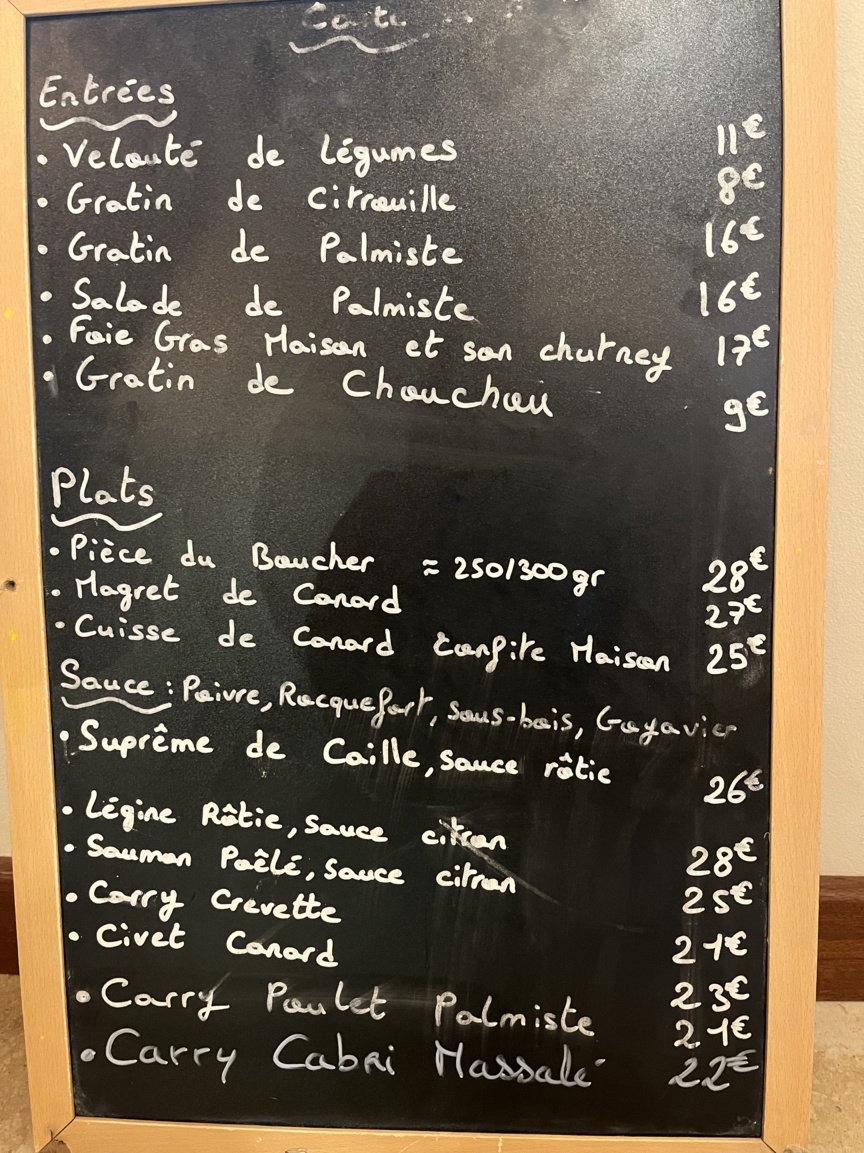 Carte
Entrées
• Velouté de légumes 11€
• Gratin de Citrouille 8€
• Gratin de Palmiste 16€
• Salade de Palmiste 16€
• Foie Gras Maison et son chutney 17€
• Gratin de Chouchou 9€
Plats
• Pièce du Boucher ≈ 250/300gr 28€
• Magret de Canard 27€
• Cuisse de Canard Confite Maison 25€
Sauce : Poivre, Rocquefort, sous-bois, Goyavier
• Suprême de Caille, sauce rôtie 26€
• Légine Rôtie, sauce citron 28€
• Saumon Poêlé, sauce citron 25€
• Carry Crevette 21€
• Civet Canard 23€
• Carry Poulet Palmiste 21€
• Carry Cabri Massalé 22€